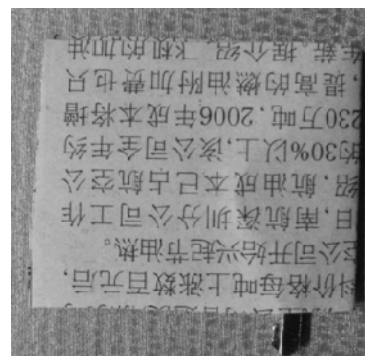 料价格每吨上涨数百元后，
空公司开始兴起节油热。
日，南航深圳分公司工作
绍，航油成本已占航空公
的30%以上，该公司全年约
230万吨，2006年成本将增
，提高的燃油附加费也只
据介绍，飞机的加油